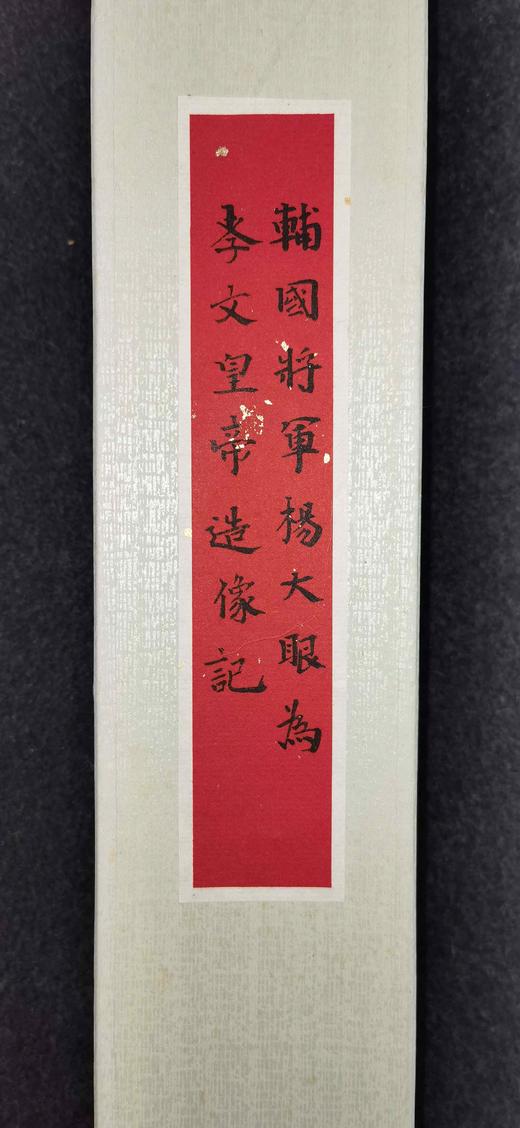 輔國將軍楊大眼為
孝文皇帝造像記